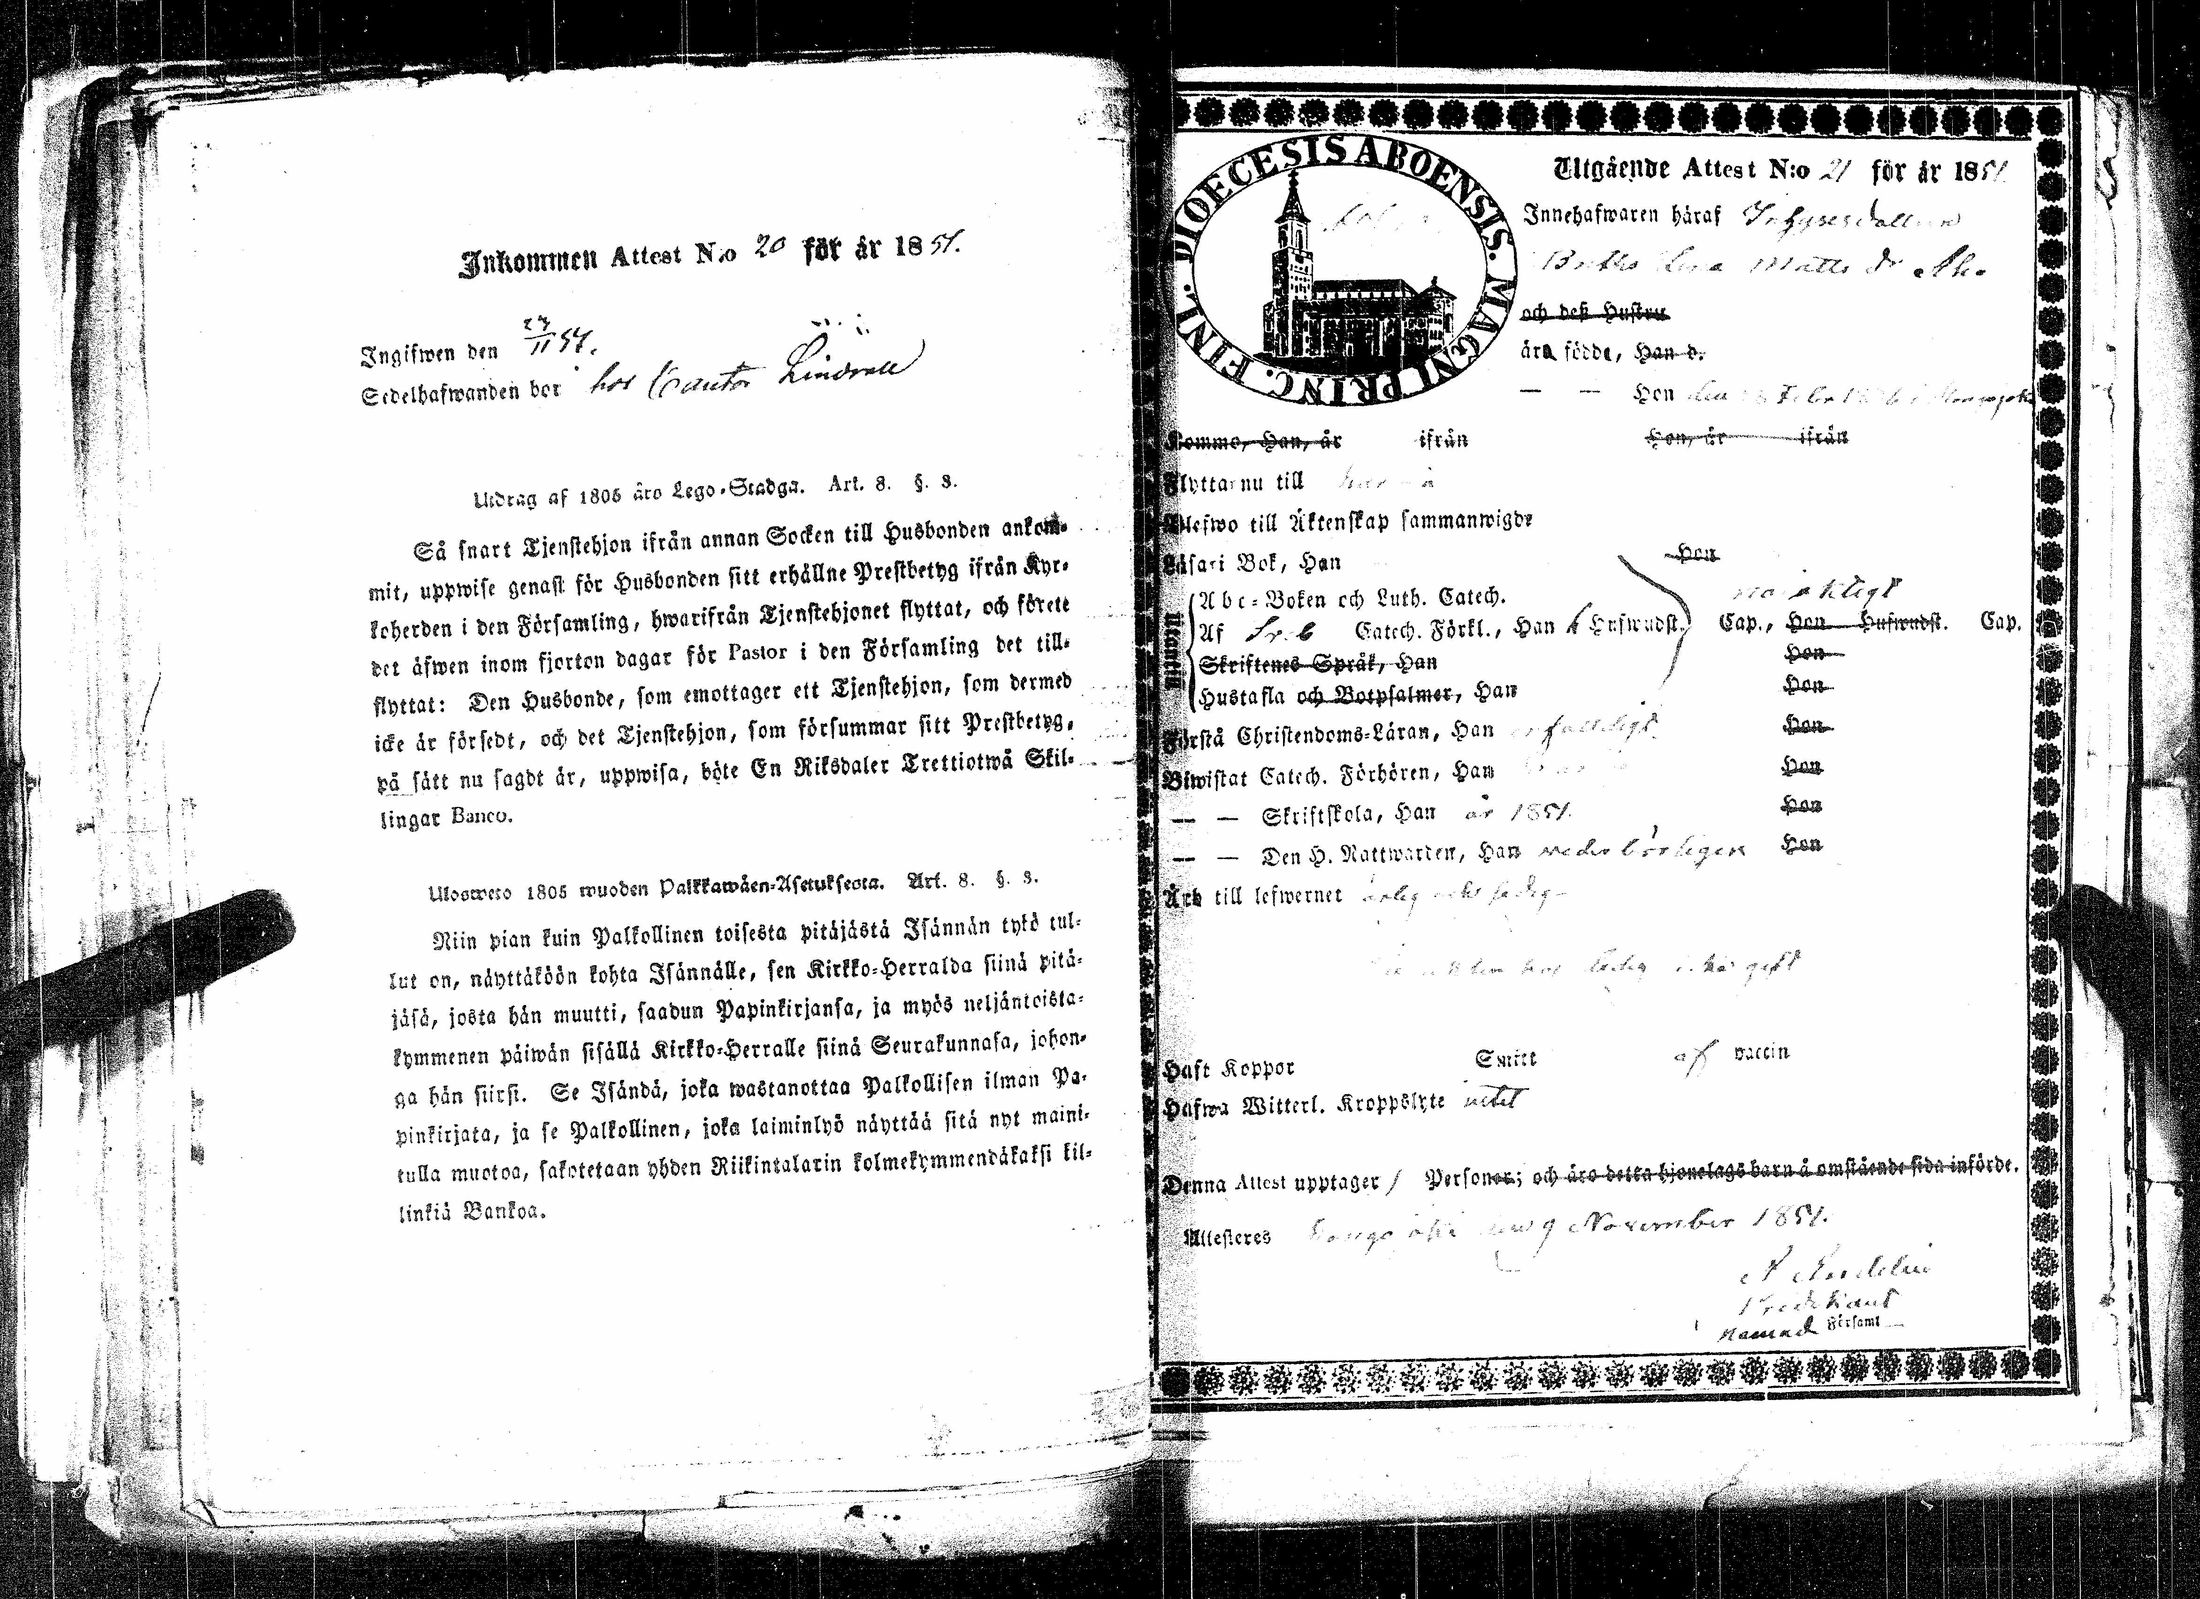 Inkommen Attest N:o 20 för år 1851.
Ingifwen den 27/11 51.
Sedelhafwanden bor hos Cantor Lindvall
Utdrag af 1805 års Lego-Stadga. Art. 8. §. 3.
Så snart Tjenstehjon ifrån annan Socken till Husbonden ankom-
mit, uppwise genast för Husbonden sitt erhållne Prestbetyg ifrån Kyr-
koherden i den Församling, hwarifrån Tjenstehjonet flyttat, och förete
det äfwen inom fjorton dagar för Pastor i den Församling det till-
flyttat: Den Husbonde, som emottager ett Tjenstehjon, som dermed
icke är försedt, och det Tjenstehjon, som försummar sitt Prestbetyg,
på sätt nu sagdt är, uppwisa, böte En Riksdaler Trettiotwå Skil-
lingar Banco.
Ulosweto 1805 wuoden Palkkawäen-Asetuksesta. Art. 8. §. 3.
Niin pian kuin Palkollinen toisesta pitäjästä Isännän tykö tul-
lut on, näyttäköön kohta Isännälle, sen Kirkko-Herralda siinä pitä-
jäsä, josta hän muutti, saadun Papinkirjansa, ja myös neljäntoista-
kymmenen päiwän sisällä Kirkko-Herralle siinä Seurakunnasa, johon-
ga hän siirsi. Se Isändä, joka wastanottaa Palkollisen ilman Pa-
pinkirjata, ja se Palkollinen, joka laiminlyö näyttää sitä nyt maini-
tulla muotoa, sakotetaan yhden Riikintalarin kolmekymmendäkaksi kil-
linkiä Bankoa.
DIOECESIS ABOENSIS. MAGNI PRINC. FINL.
Utgående Attest N:o 21 för år 1851
Innehafwaren häraf
Matts dr
och deß Hustru
äro födde, Han d.
— — Hon den Febr
Komme, Han, år ifrån Hon, år ifrån
Flyttar nu till
Blefwo till Äktenskap sammanwigde
Läsa i Bok, Han Hon
Utantill
Abc-Boken och Luth. Catech.
Af Catech. Förkl., Han Hufwudst. Cap., Hon Hufwudst. Cap.
Skriftenes Språk, Han Hon
Hustafla och Botpsalmer, Han Hon
Förstå Christendoms-Läran, Han Hon
Biwistat Catech. Förhören, Han Hon
— — Skriftskola, Han år 1851. Hon
— — Den H. Nattwarden, Han vederbörligen Hon
Äro till lefwernet ärlig och sedig
ledig gift
Haft Koppor Smitt af vaccin
Hafwa Witterl. Kroppslyte intet
Denna Attest upptager 1 Personer; och äro detta hjonelags barn å omstående sida införde.
Attesteras den 9 November 1851.
Predikant
Församl